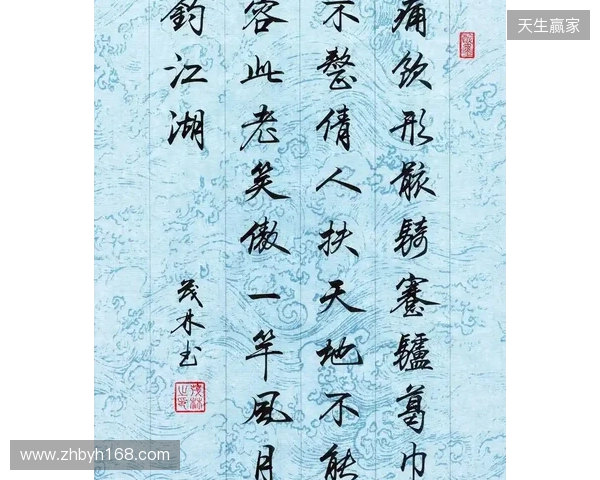 痛饮形骸騎蹇驢葛巾
不整倩人扶天地不能
容此老笑傲一竿風月
釣江湖
茂林书
天生赢家
www.zhbyh168.com